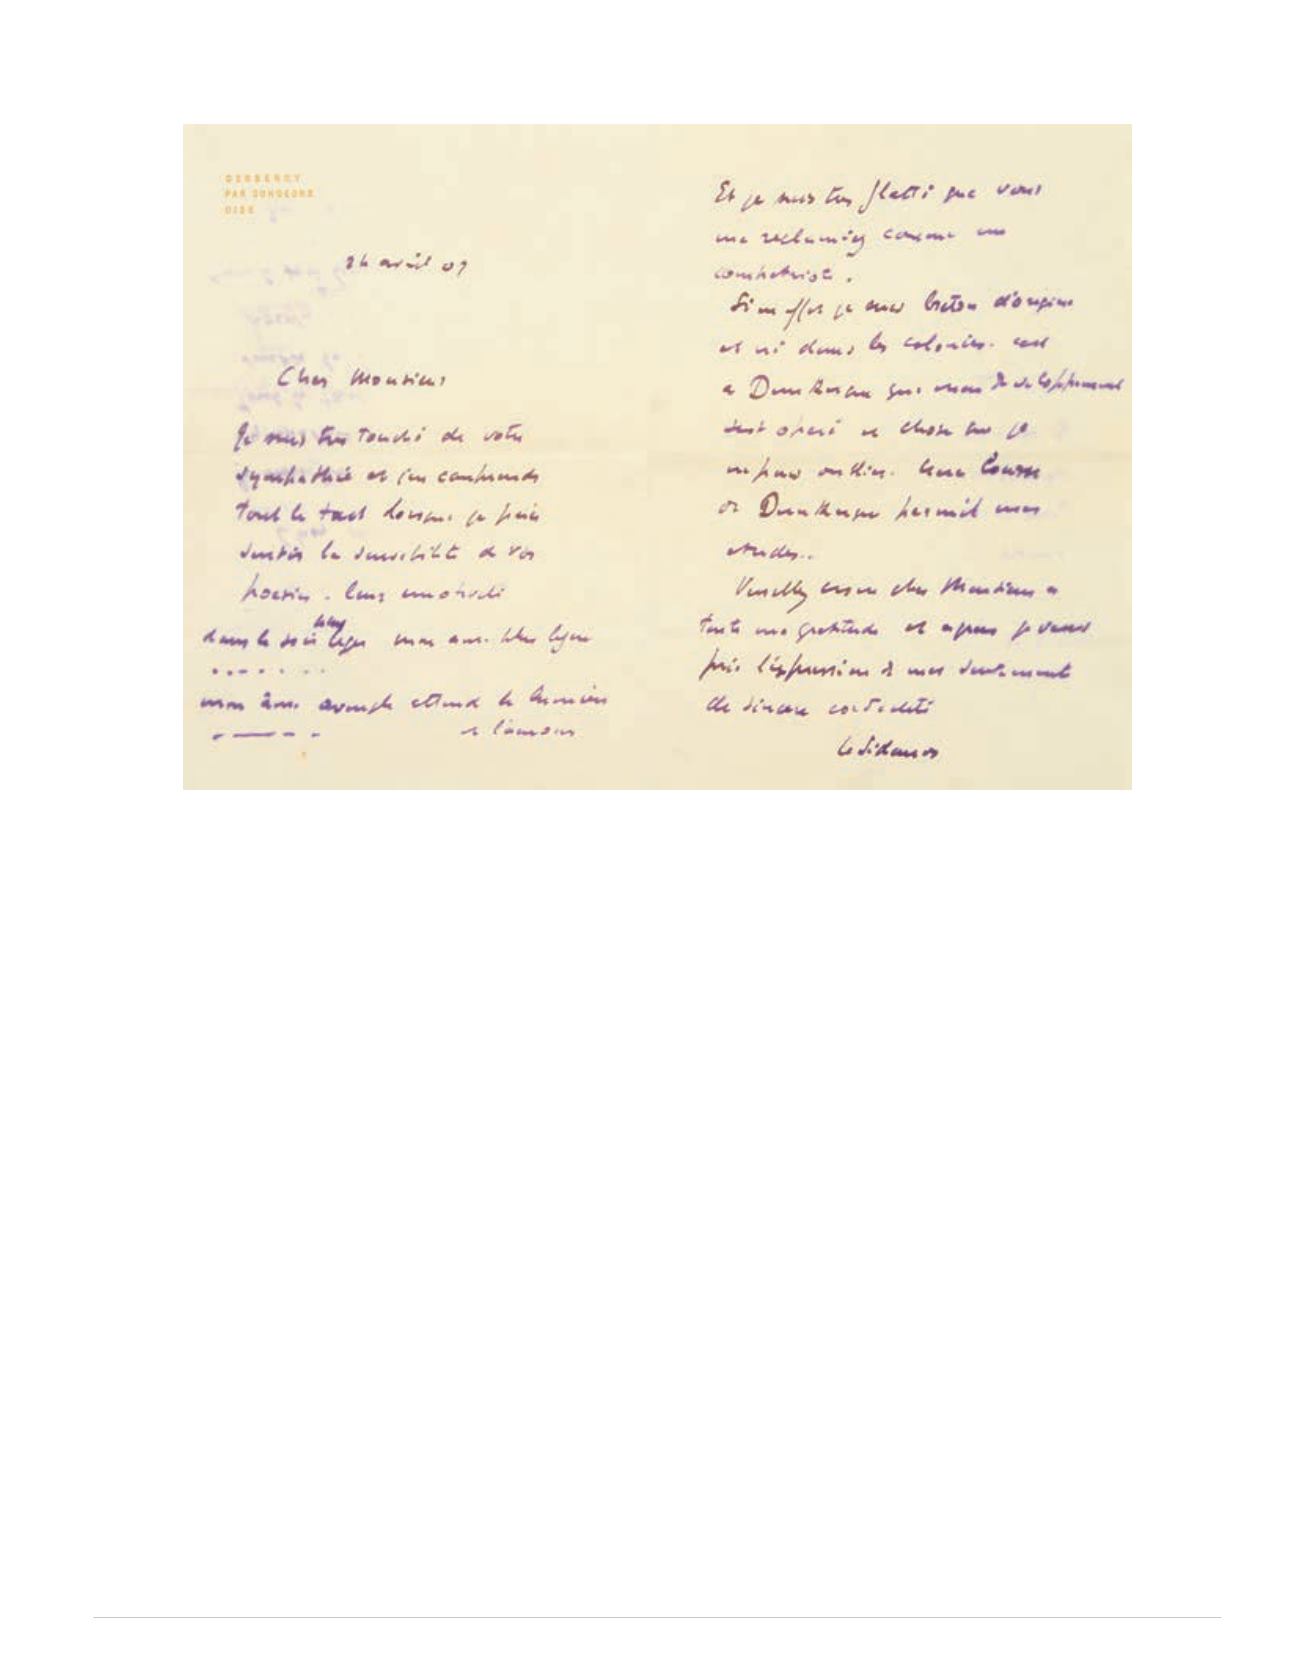 GERBEROY
PAR SONGEONS
OISE
24 avril 07
Cher Monsieur
Je suis tres touché de votre
sympathie et j'en comprends
tout le tact lorsque je puis
sentir la sensibilité de vos
poesies. leur emotivité
dans le soir leger mon ame plus legere
plus
mon âme aveugle attend la lumière
et l'amour
Et je suis tres flatté que vous
me reclamiez comme un
compatriote.
Si en effet je suis breton d'origine
et né dans les colonies. c'est
a Dunkerque que mon developpement
s'est opéré et chose que je
ne puis oublier. Une bourse
de Dunkerque permit mes
etudes..
Veuillez croire cher Monsieur a
toute ma gratitude et agreer je vous
prie l'expression de mes sentiments
de sincere cordialité
Le Sidaner